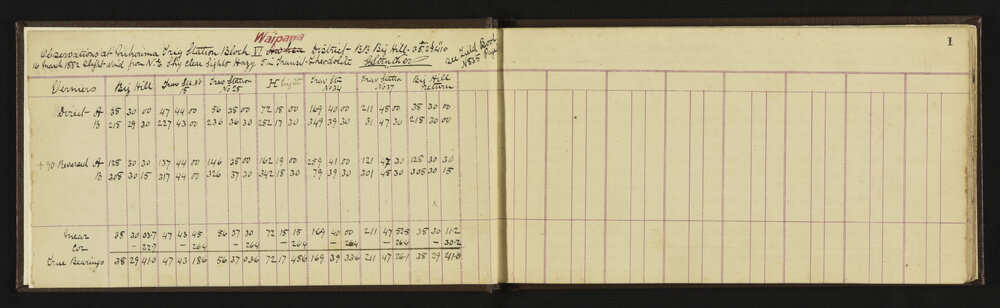 Waipawa
Observations at Trig Station Block VI District BB Big Hill. 38° 29' 41"0
16 March 1882 Slight Wind from N.E. Sky Clear Sights Hazy 5 in Transit Theodolite
See Field Book
No 35 Page
1
Verniers Big Hill Trav Stn No 15 Trav Station No 25 H Trav Stn No 34 Trav Station No 37 Big Hill return
Direct A 38 30 00 47 44 00 56 38 00 72 18 00 169 40 00 211 48 00 38 30 00
B 218 29 30 227 43 00 236 36 30 252 17 30 349 39 30 31 47 30 218 30 00
+ 90 Reversed A 128 30 30 137 44 00 146 38 00 162 19 00 259 41 00 121 47 30 128 30 30
B 308 30 15 317 44 00 326 37 30 342 18 30 79 39 30 301 48 30 308 30 15
Mean 38 30 03.7 47 43 45 56 37 30 72 18 15 169 40 00 211 47 52.5 38 30 11.2
Cor – 22.7 – 26.4 – 26.4 – 26.4 – 26.4 – 26.4 – 30.2
True Bearings 38 29 41.0 47 43 18.6 56 37 03.6 72 17 48.6 169 39 33.6 211 47 26.1 38 29 41.0